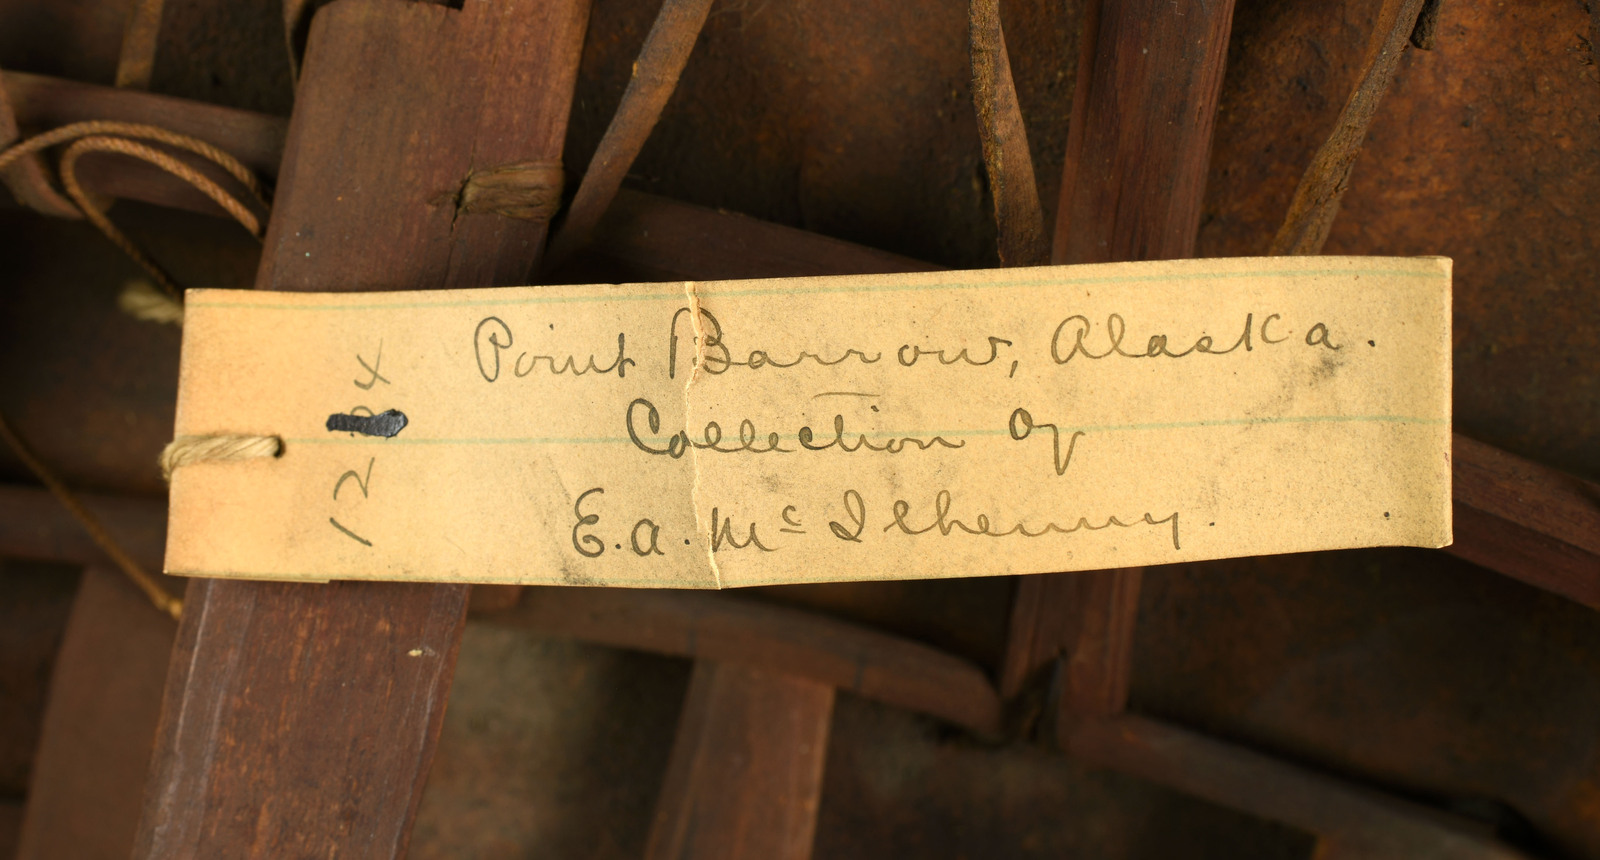 Point Barrow, Alaska.
Collection of
E.a. Mc Ilhenny.
12
x